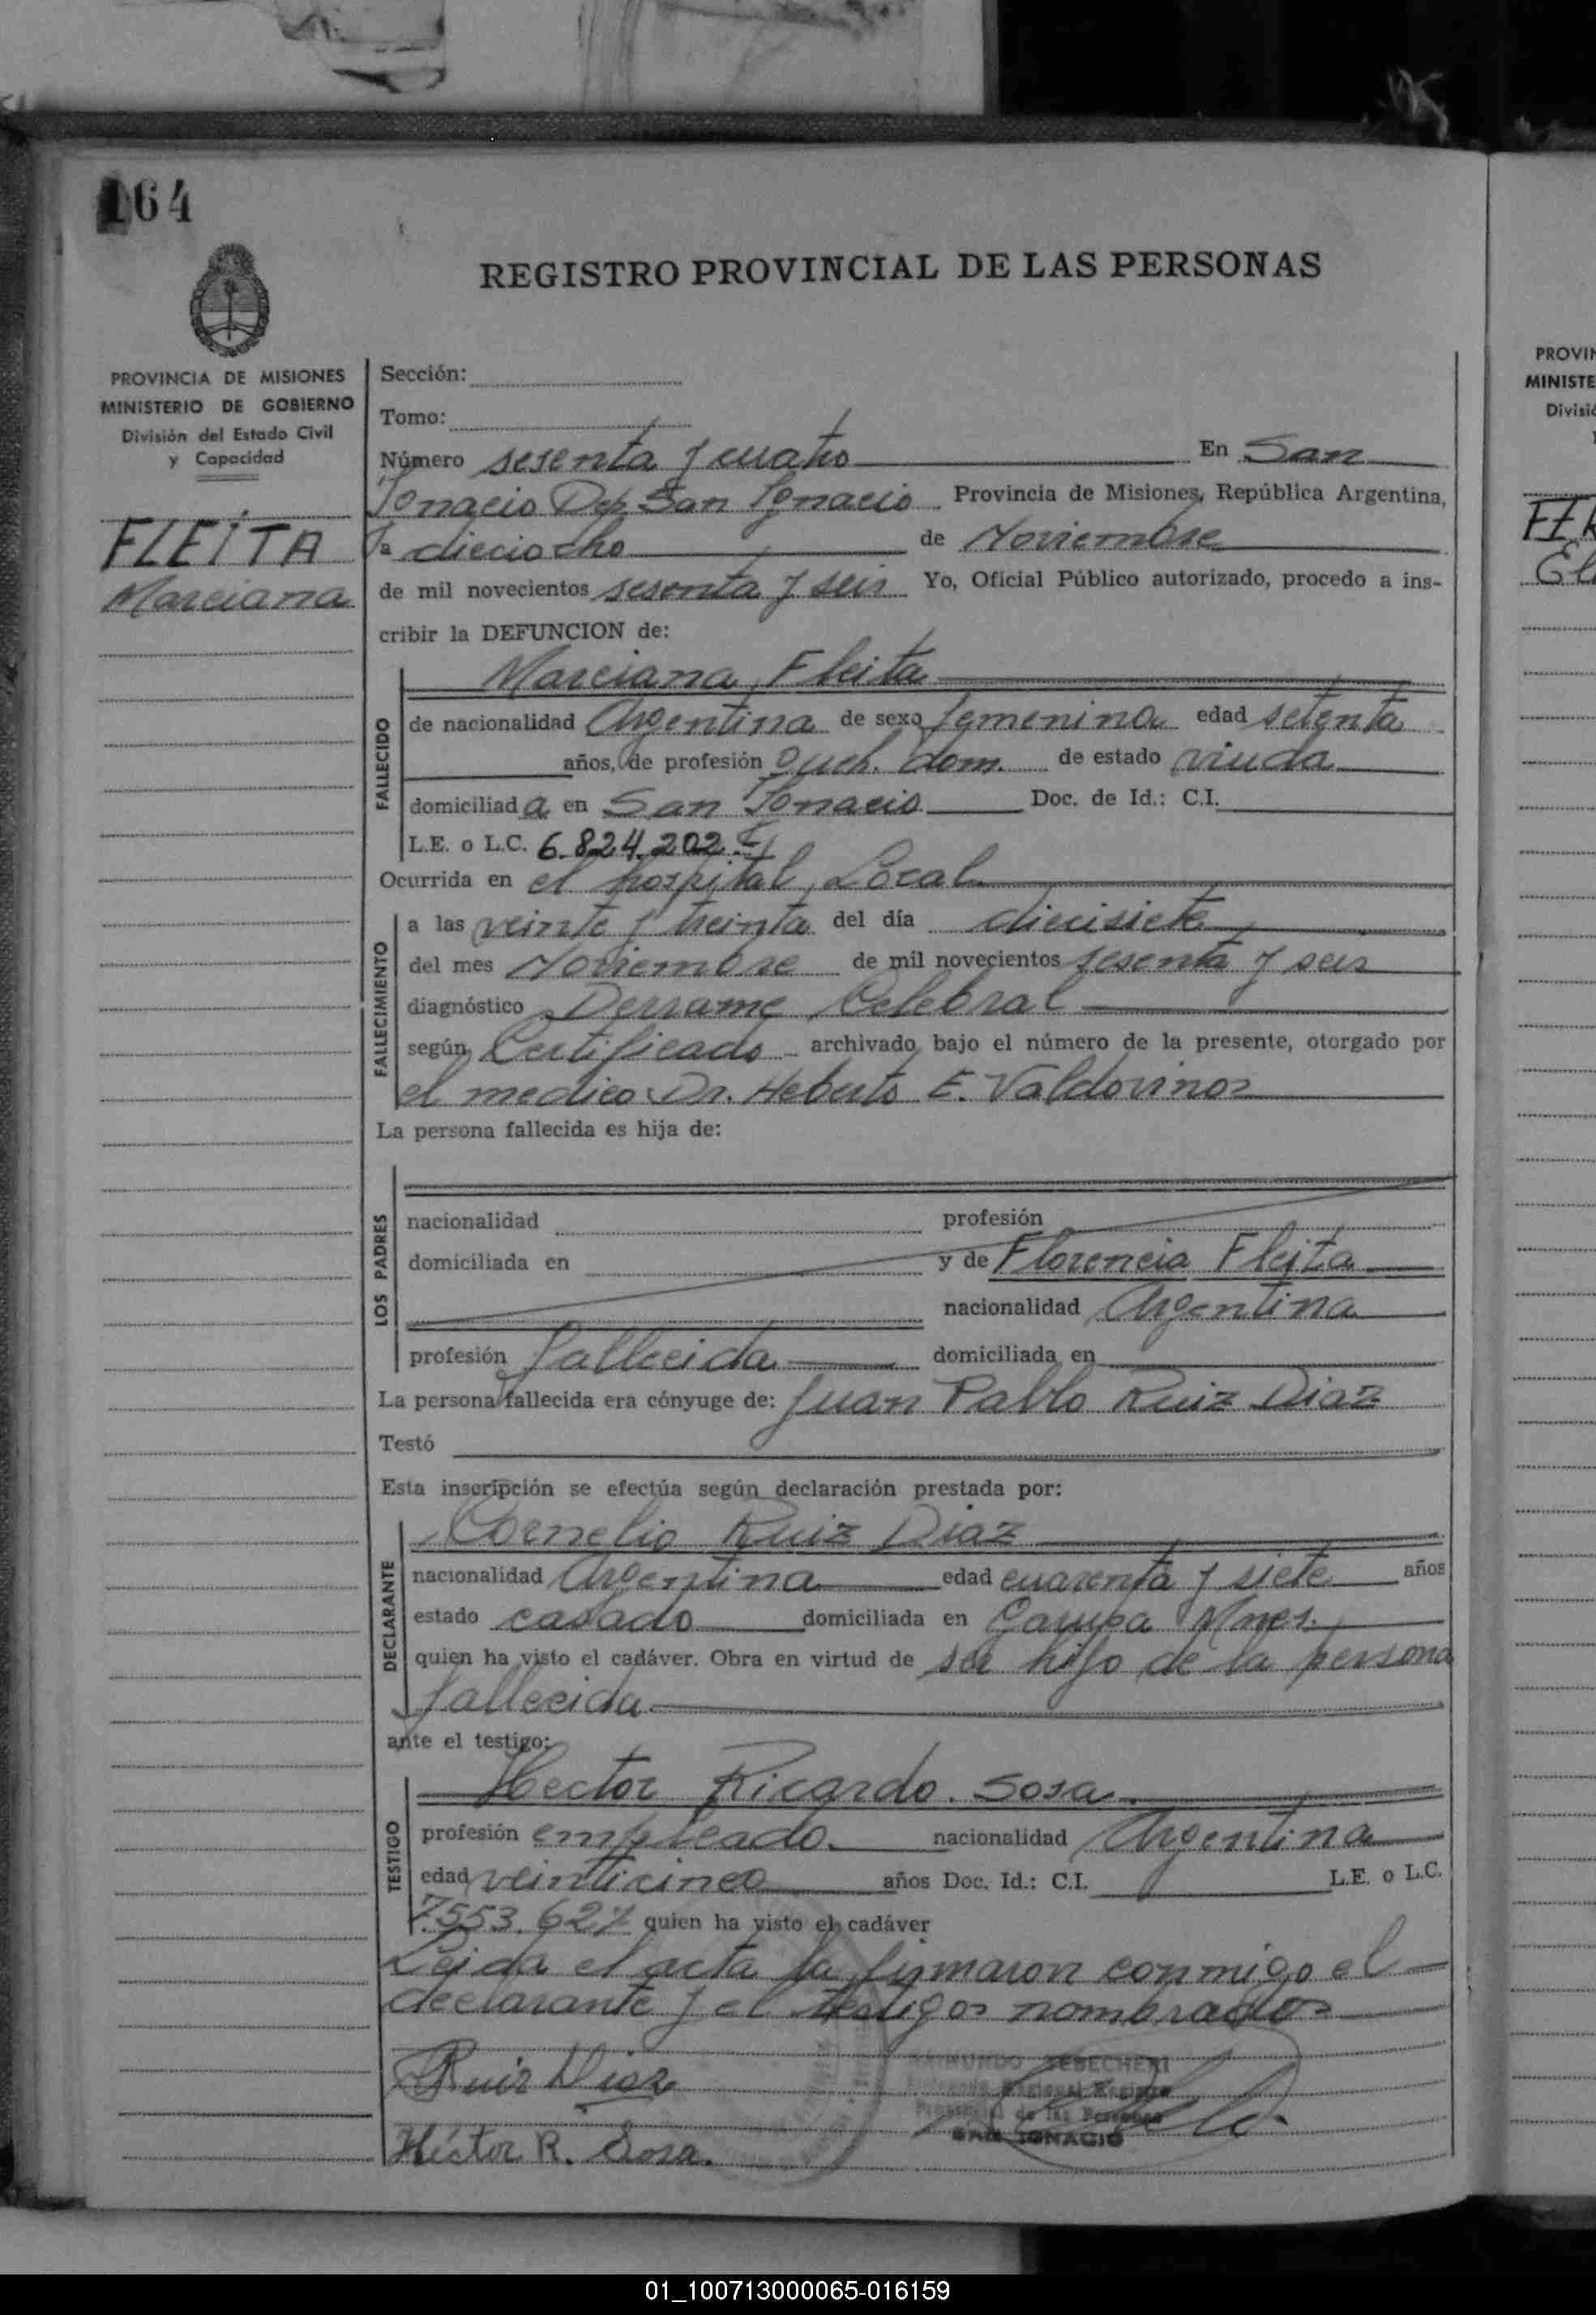 164
REGISTRO PROVINCIAL DE LAS PERSONAS
PROVINCIA DE MISIONES
MINISTERIO DE GOBIERNO
División del Estado Civil
y Capacidad
FLEITA
Marciana
Sección:
Tomo:
Número sesenta y cuatro En San
Ignacio Dep. San Ignacio Provincia de Misiones, República Argentina,
a dieciocho de Noviembre
de mil novecientos sesenta y seis Yo, Oficial Público autorizado, procedo a ins-
cribir la DEFUNCION de:
FALLECIDO
Marciana Fleita
de nacionalidad Argentina de sexo femenino edad setenta
años, de profesión Queh. dom. de estado viuda
domiciliada en San Ignacio Doc. de Id.: C.I.
L.E. o L.C. 6.824.202
Ocurrida en el hospital Local
FALLECIMIENTO
a las veinte y treinta del día diecisiete
del mes Noviembre de mil novecientos sesenta y seis
diagnóstico Derrame Celebral
según Certificado archivado bajo el número de la presente, otorgado por
el medico Dr. Heberto E. Valdovinos
La persona fallecida es hija de:
LOS PADRES
nacionalidad profesión
domiciliada en y de Florencia Fleita
nacionalidad Argentina
profesión fallecida domiciliada en
La persona fallecida era cónyuge de: Juan Pablo Ruiz Diaz
Testó
Esta inscripción se efectúa según declaración prestada por:
DECLARANTE
Cornelio Ruiz Diaz
nacionalidad Argentina edad cuarenta y siete años
estado casado domiciliada en Garupa Mnes.
quien ha visto el cadáver. Obra en virtud de ser hijo de la persona
fallecida
ante el testigo:
TESTIGO
Hector Ricardo Sosa
profesión empleado. nacionalidad Argentina
edad veinticinco años Doc. Id.: C.I. L.E. o L.C.
7.553.627 quien ha visto el cadáver
Leida el acta la firmaron conmigo el
declarante y el testigos nombrados
Ruiz Diaz
RAIMUNDO
Provincial de las Personas
SAN IGNACIO
Héctor R. Sosa.
PROVIN
MINISTE
Divisió
01_100713000065-016159